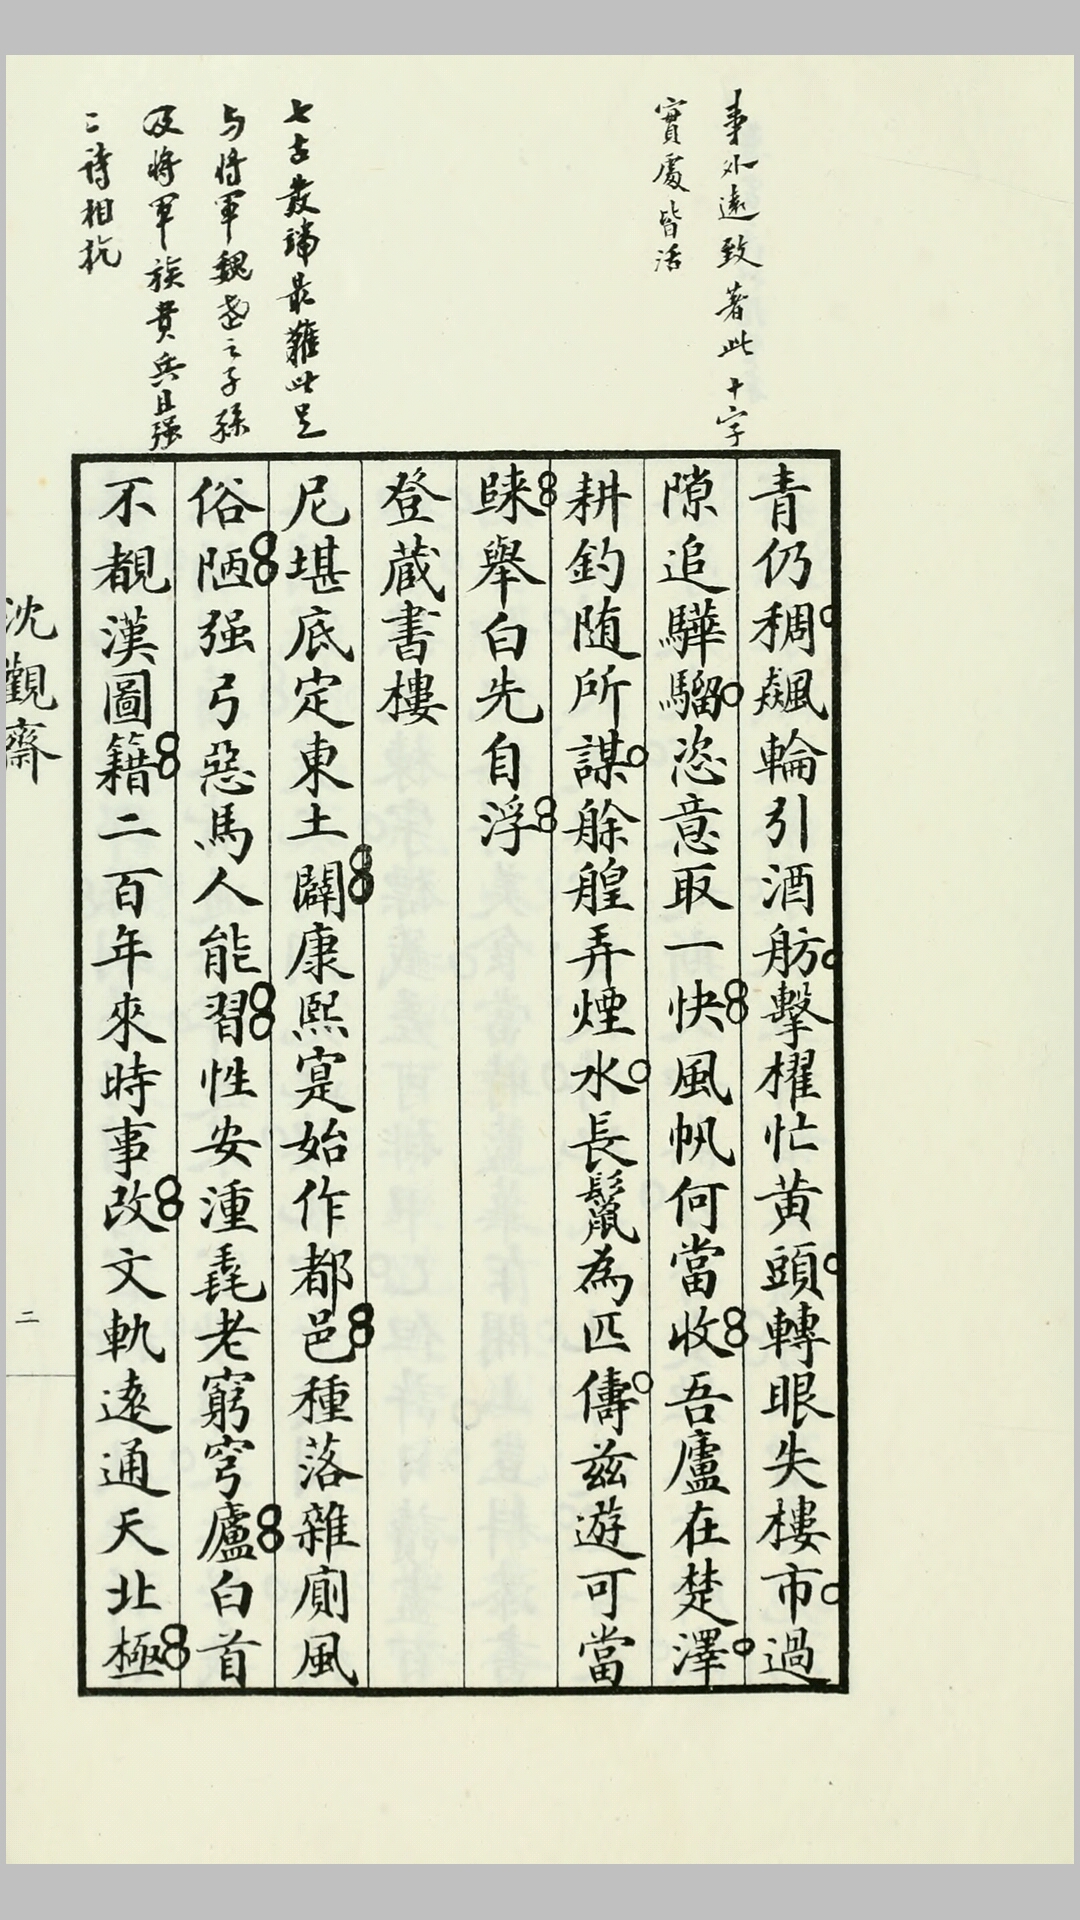 事外遠致著此十字
實處皆活
七古發端最難此足
与將軍魏武之子孫
及將軍族貴兵且强
二詩相抗
青仍稠飆輪引酒舫擊櫂忙黄頭轉眼失樓市過
隙追驊騮恣意取一快風帆何當收吾廬在楚澤
耕釣随所謀艅艎弄煙水長鬣為匹儔兹遊可當
睞舉白先自浮
登蔵書樓
尼堪底定東土闢康熙寔始作都邑種落雜廁風
俗陋强弓惡馬人能習性安湩毳老窮穹廬白首
不覩漢圖籍二百年來時事改文軌遠通天北極
沈觀齋
二